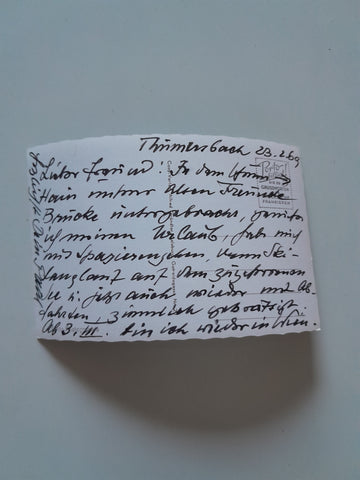 Thumersbach 23.2.69
Lieber Freund! In dem
Haus meiner alten Freunde
Brücke untergebracht, genieße
ich meinen Urlaub, hab mich
mit Spazierengehen, dem Ski-
langlauf auf dem zugefrorenen
See u. jetzt auch wieder mit Ab-
fahrten, ziemlich gekräftigt.
Ab 3. III. bin ich wieder in Wien.
FRANKIEREN